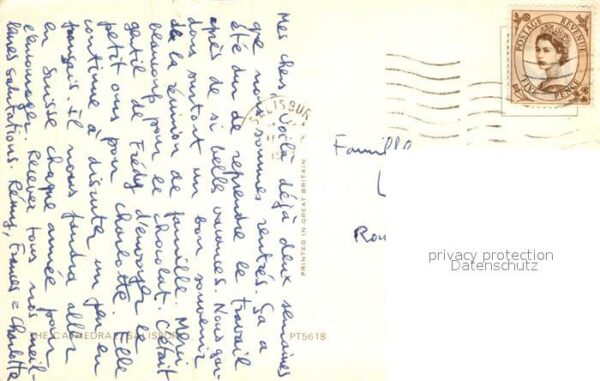 Mes chers, Voilà déjà deux semaines
que nous sommes rentrés. Ça a
été dur de reprendre le travail
après de si belle vacances. Nous gar-
dons surtout un bon souvenir
de la réunion de famille. Merci
beaucoup pour le chocolat. C'était
gentil de Frédy d'envoyer le
petit ours pour Charlotte. Elle
continue à discuter un peu en
français. Il nous faudra aller
en Suisse chaque année pour
l'encourager. Recevez tous nos meil-
leures salutations. Rémy, Frances + Charlotte
THE CATHEDRAL, SALISBURY
PT5618
PRINTED IN GREAT BRITAIN
SALISBUR
POSTAGE REVENUE
FIVE PENCE
Famille
L
Rou
privacy protection
Datenschutz